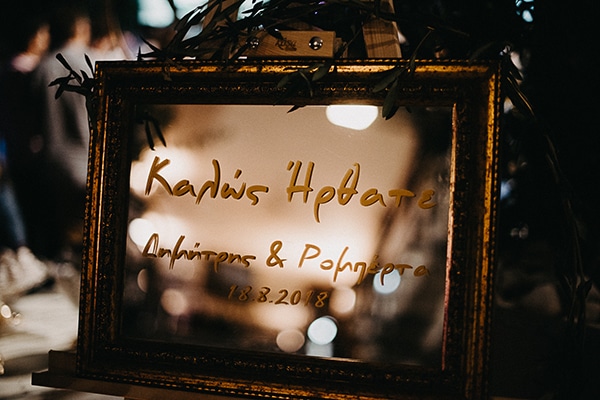 Καλώς Ήρθατε
Δημήτρης & Ρομπέρτα
18.8.2018